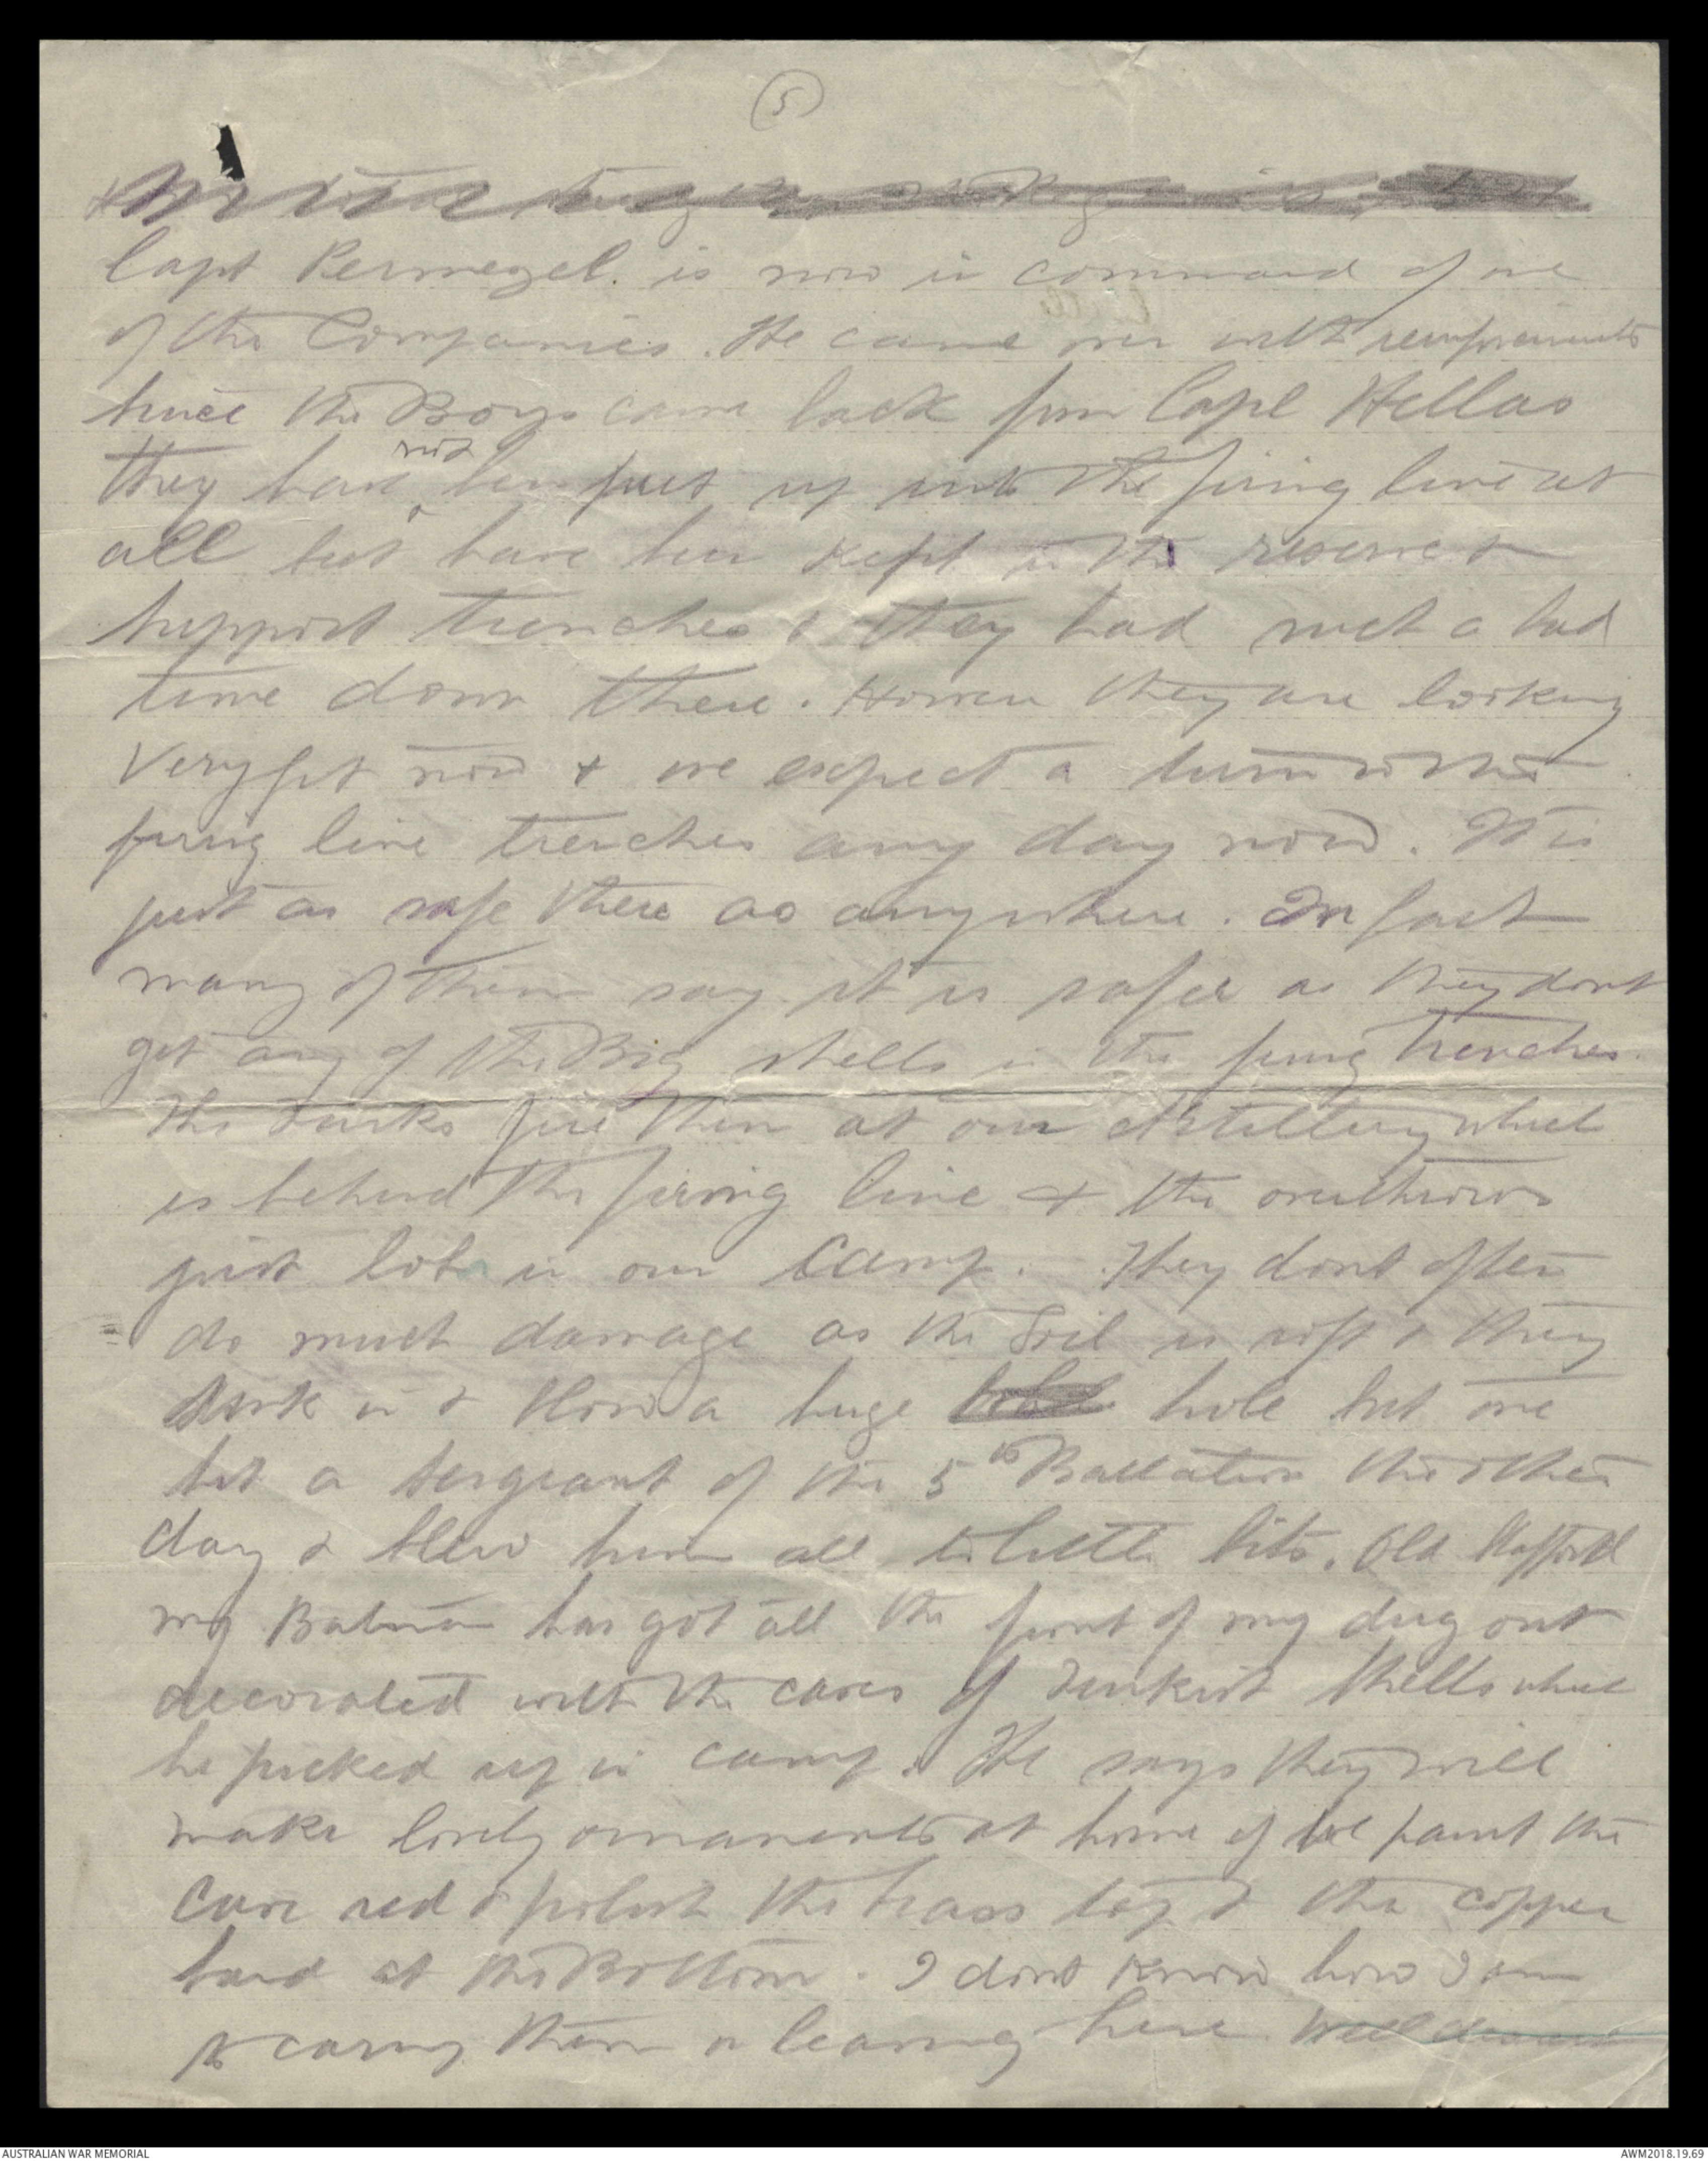 5
Capt Permezel. is now in command of one
of the Companies. He came over with reinforcements
since the Boys came back from Cape Hellas
they have not been put up into the firing line at
all but have been kept in the reserve &
support trenches & they had such a bad
time down there. However they are looking
very fit now & we expect a turn in the
firing line trenches any day now. It is
just as safe there as anywhere. In fact
many of them say it is safer as they dont
get any of the Big shells in the firing trenches.
The Turks fire them at our Artillery which
is behind the firing line & the overthrows
just lob in our Camp. They dont often
do much damage as the Soil is soft & they
sink in & blow a huge hole but one
hit a sergeant of the 5th Battalion the other
day & blew him all to little bits. Old Stafford
my Batman has got all the front of my dug out
decorated with the cases of Turkish shells which
he picked up in camp. He says they will
make lovely ornaments at home if we paint the
Case red & polish the brass top & the copper
band at the Bottom. I dont know how I am
to carry them on leaving here
AUSTRALIAN WAR MEMORIAL
AWM2018.19.69